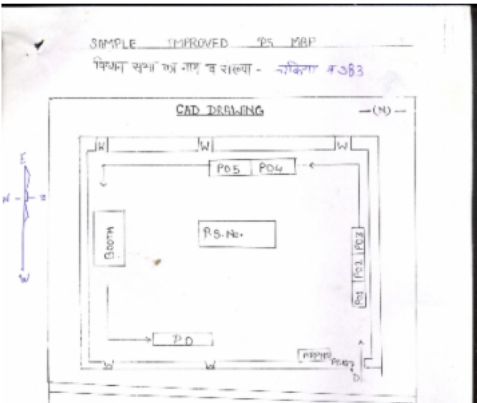 SAMPLE IMPROVED PS MAP
विधान सभा का नाम व संख्या - चकिया #383
CAD DRAWING
-(N)-
W W W
PO5 PO4
BOOTH
P.S. No.
PO1 PO2 PO3
PO
W W
D